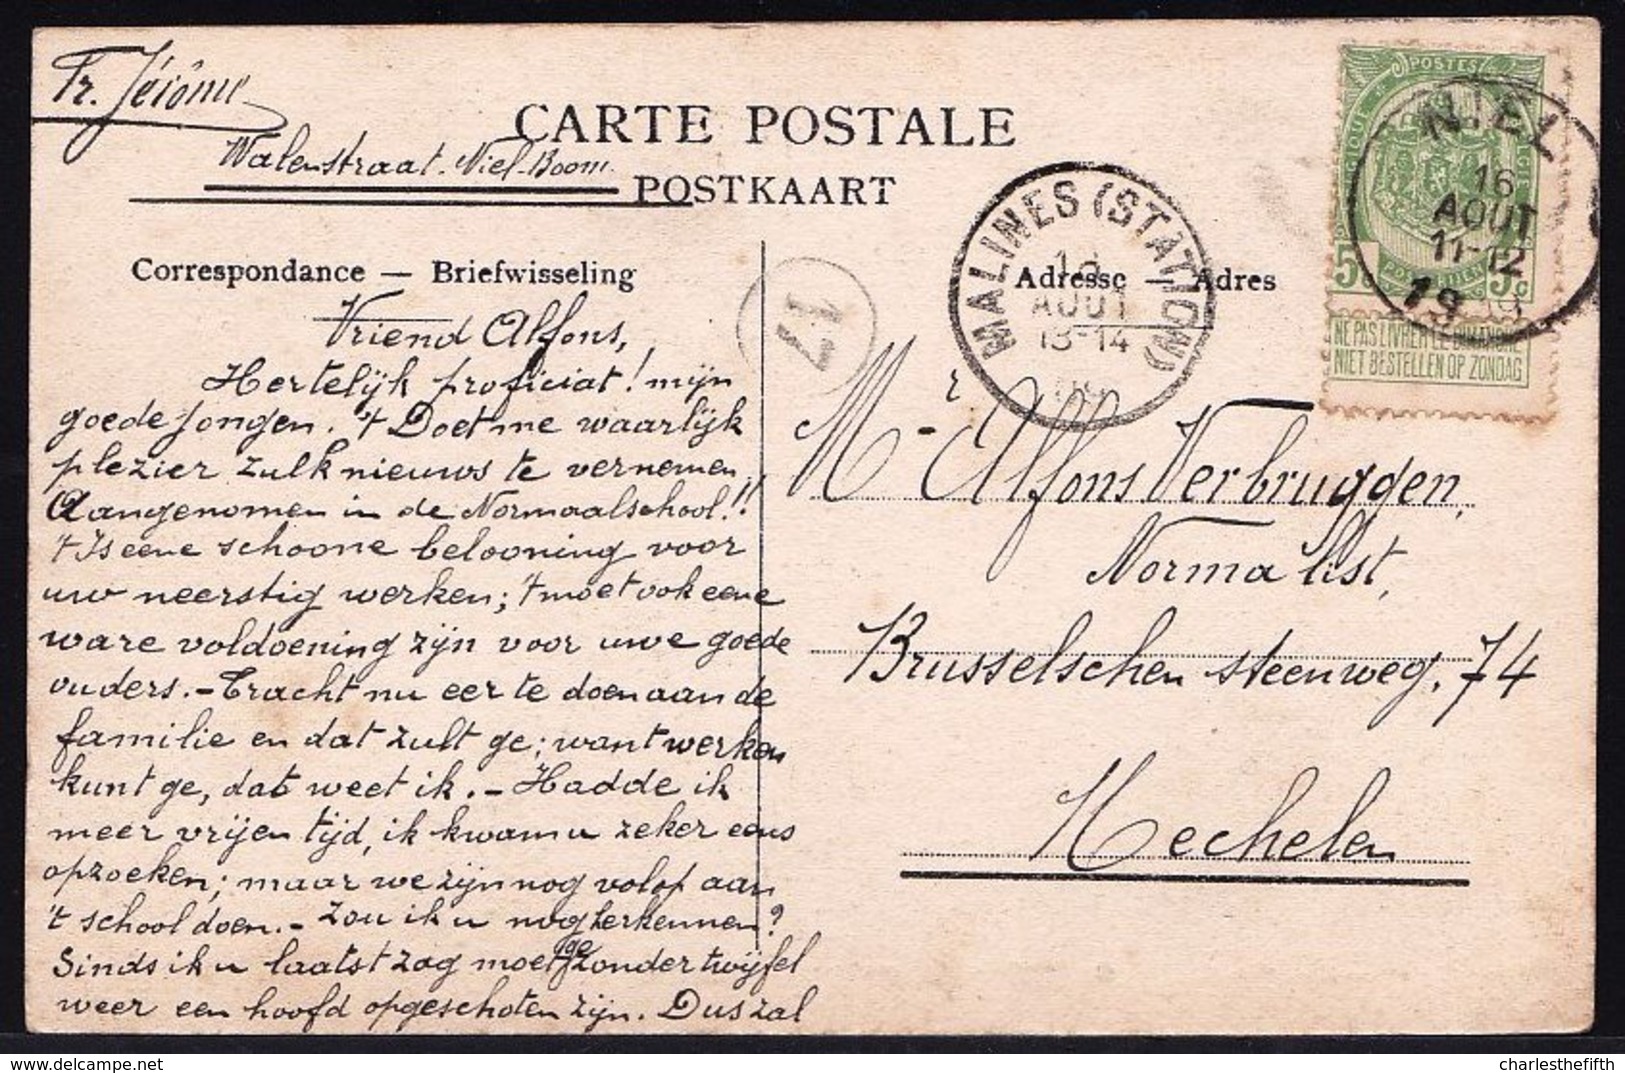 Fr. Jérôme
Walenstraat. Niel-Boom.
CARTE POSTALE
POSTKAART
Correspondance — Briefwisseling
Adresse — Adres
Vriend Alfons,
Hertelijk proficiat! mijn
goede jongen. 't Doet me waarlijk
plezier zulk nieuws te vernemen
Aangenomen in de Normaalschool!!
't Is eene schoone belooning voor
uw neerstig werken; 't moet ook eene
ware voldoening zijn voor uwe goede
ouders. – Tracht nu eer te doen aan de
familie en dat zult ge; want werken
kunt ge, dat weet ik. – Hadde ik
meer vrijen tijd, ik kwam u zeker eens
opzoeken; maar we zijn nog volop aan
't school doen. – Zou ik u nog herkennen?
Sinds ik u laatst zag moet ge zonder twijfel
weer een hoofd opgeschoten zijn. Dus zal
17
MALINES (STATION)
AOUT
13-14
POSTES
5c 5c
NIEL
16
AOUT
11-12
19
NE PAS LIVRER LE DIMANCHE
NIET BESTELLEN OP ZONDAG
Mr Alfons Verbruggen,
Normalist,
Brusselschen steenweg, 74
Mechelen
delcampe.net
charlesthefifth